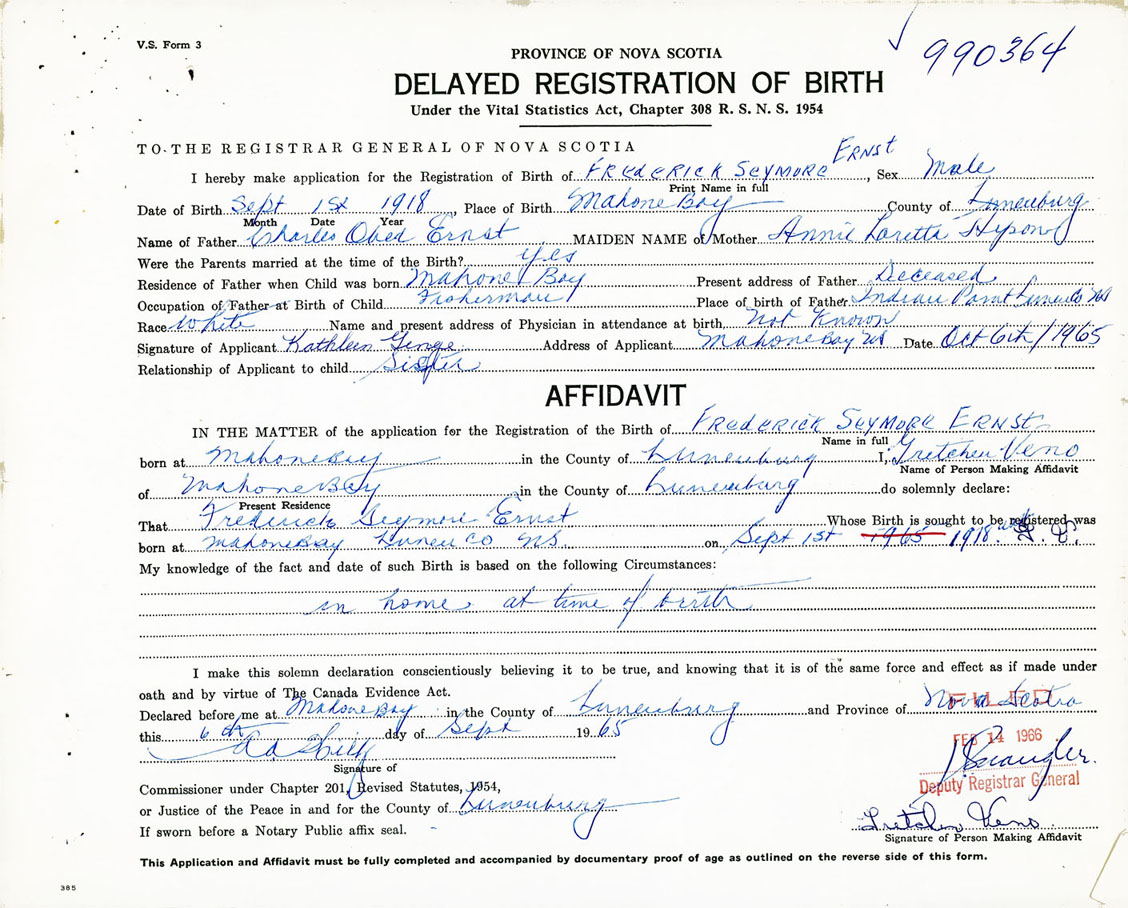 V.S. Form 3
990364
PROVINCE OF NOVA SCOTIA
DELAYED REGISTRATION OF BIRTH
Under the Vital Statistics Act, Chapter 308 R. S. N. S. 1954
TO THE REGISTRAR GENERAL OF NOVA SCOTIA
I hereby make application for the Registration of Birth of FREDERICK SEYMORE ERNST, Sex Male
Print Name in full
Date of Birth Sept 1st 1918, Place of Birth Mahone Bay County of Lunenburg
Month Date Year
Name of Father Charles Obed Ernst MAIDEN NAME of Mother Annie Loretta
Were the Parents married at the time of the Birth? Yes
Residence of Father when Child was born Mahone Bay Present address of Father Deceased
Occupation of Father at Birth of Child Fisherman Place of birth of Father Indian Point Lunen Co NS
Race White Name and present address of Physician in attendance at birth Not Known
Signature of Applicant Kathleen Address of Applicant Mahone Bay NS Date Oct 6th/1965
Relationship of Applicant to child Sister
AFFIDAVIT
IN THE MATTER of the application for the Registration of the Birth of FREDERICK SEYMORE ERNST
Name in full
born at Mahone Bay in the County of Lunenburg I, Gretchen Veno
Name of Person Making Affidavit
of Mahone Bay in the County of Lunenburg do solemnly declare:
Present Residence
That Frederick Seymore Ernst Whose Birth is sought to be registered was
born at Mahone Bay Lunen Co NS. on Sept 1st 1965 1918.
My knowledge of the fact and date of such Birth is based on the following Circumstances:
in home at time of birth
I make this solemn declaration conscientiously believing it to be true, and knowing that it is of the same force and effect as if made under
oath and by virtue of The Canada Evidence Act.
Declared before me at Mahone Bay in the County of Lunenburg and Province of Nova Scotia
FILED
this 6th day of Sept 1965
FEB 14 1966
Signature of
Deputy Registrar General
Commissioner under Chapter 201, Revised Statutes, 1954,
or Justice of the Peace in and for the County of Lunenburg
Gretchen Veno
If sworn before a Notary Public affix seal.
Signature of Person Making Affidavit
This Application and Affidavit must be fully completed and accompanied by documentary proof of age as outlined on the reverse side of this form.
385